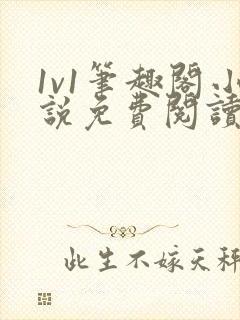 1v1筆趣閣.小
說免費閱讀
此生不嫁天秤